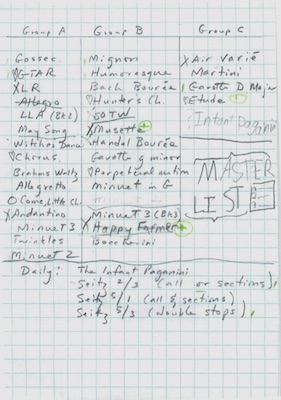 Group A Group B Group C
Gossec Mignon X Air Varié
♡G-TAR Humoresque Martini
XLR Bach Bourée Gavotte D Major
Allegro ♡Hunter's Ch. Etude
LLA (Bk1) SOTW Infant Paganini
May Song X Musette
Witches Dance Handel Bourée MASTER
♡Chorus Gavotte g minor LIST
Brahms Waltz ♡Perpetual motion
Allegretto minuet in G
O Come, Little Ch.
X Andantino Minuet 3 (Bk3)
Minuet 3 X Happy Farmer
Twinkles Boccherini
Minuet 2
Daily: The Infant Paganini
Seitz 2/3 (all or sections)
Seitz 5/1 (all & sections)
Seitz 5/3 (double stops)